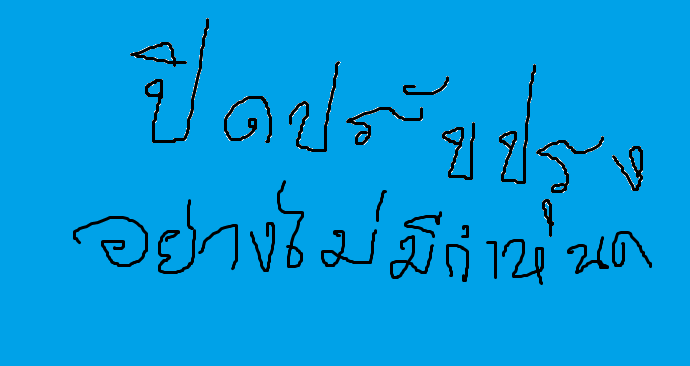 ปิดปรับปรุง
อย่างไม่มีกำหนด